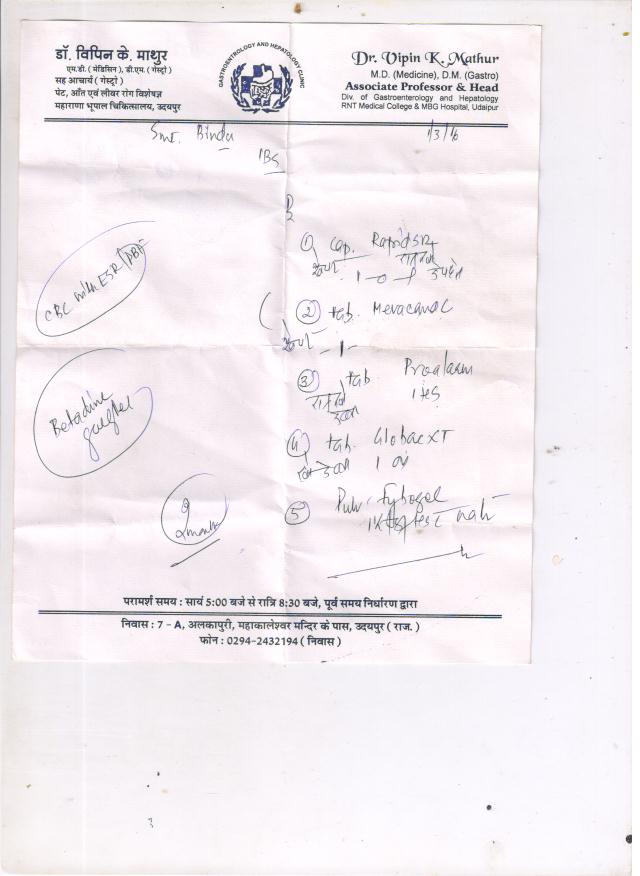 डॉ. विपिन के. माथुर
एम.डी. ( मेडिसिन ), डी.एम. ( गेस्ट्रो )
सह आचार्य ( गेस्ट्रो )
पेट, आँत एवं लीवर रोग विशेषज्ञ
महाराणा भूपाल चिकित्सालय, उदयपुर
GASTROENTROLOGY AND HEPATOLOGY CLINIC
Dr. Vipin K. Mathur
M.D. (Medicine), D.M. (Gastro)
Associate Professor & Head
Div. of Gastroenterology and Hepatology
RNT Medical College & MBG Hospital, Udaipur
Smt. Bindu
1/3/16
IBS
CBC with ESR
① Cap.
1 - 0 - 1
② tab.
- 1 -
③ tab.
Betadine gargles
④ tab. Globac XT
1 od
⑤ Pulv. Fybogel
2 months
परामर्श समय : सायं 5:00 बजे से रात्रि 8:30 बजे, पूर्व समय निर्धारण द्वारा
निवास : 7 - A, अलकापुरी, महाकालेश्वर मन्दिर के पास, उदयपुर ( राज. )
फोन : 0294-2432194 ( निवास )